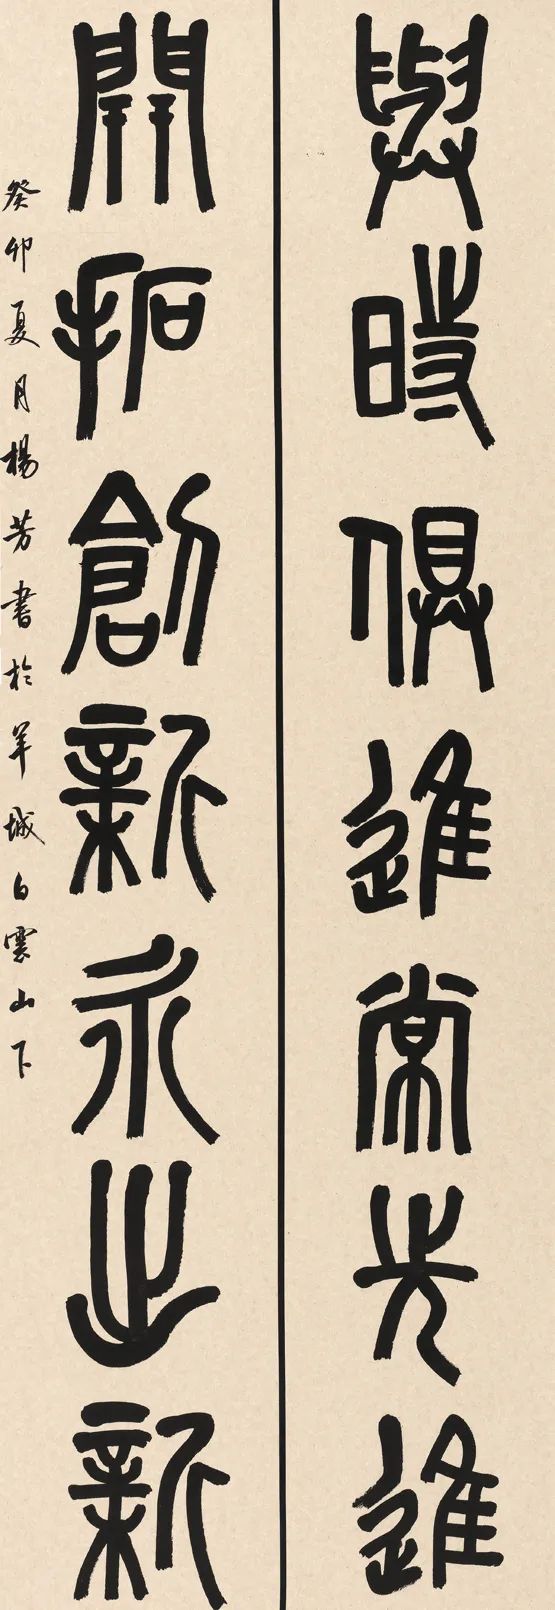 與時俱進常先進
開拓創新永出新
癸卯夏月楊芳書於羊城白雲山下